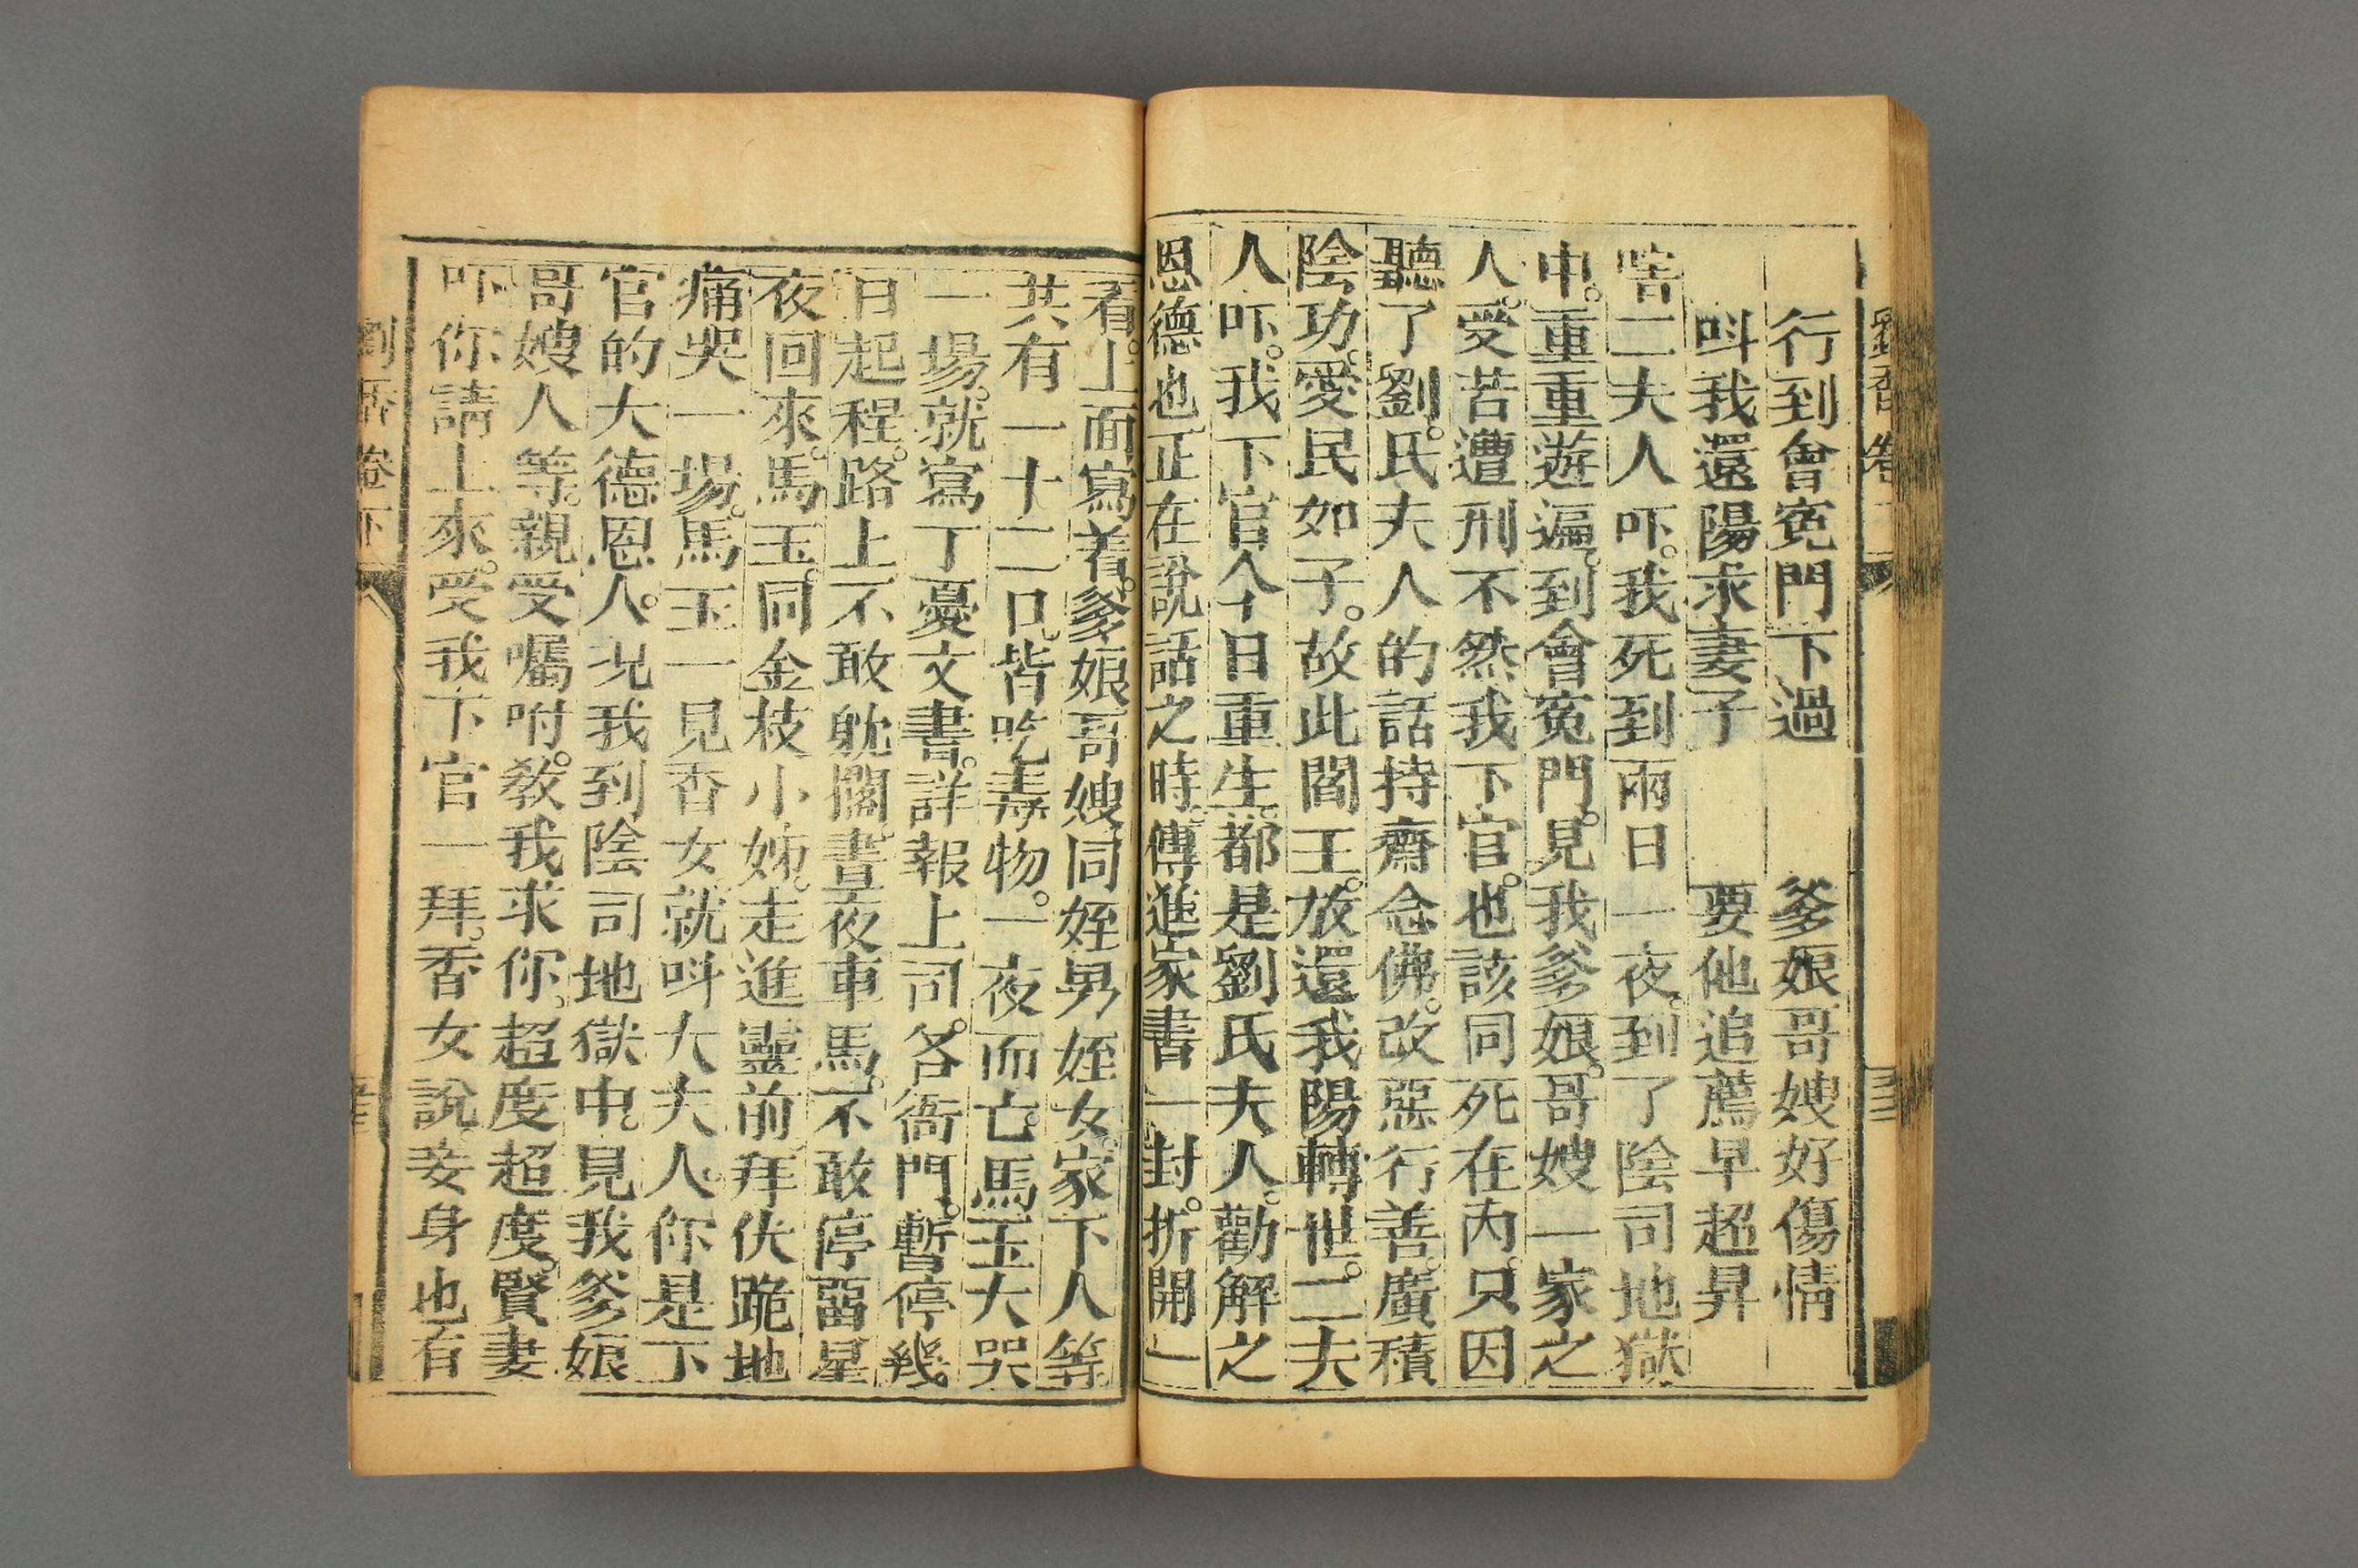 行到會寃門下過　　爹娘哥嫂好傷情
呌我還陽求妻子　　要他追薦早超昇
啥二夫人吓。我死到兩日一夜。到了陰司地獄
中。重重遊遍。到會寃門。見我爹娘。哥嫂一家之
人。受苦遭刑不然我下官。也該同死在內。只因
聽了劉。氏夫人的話持齋念佛。改惡行善。廣積
陰功。愛民如子。故此閻王。放還我陽轉世。二夫
人吓。我下官今日重生。都是劉氏夫人。勸解之
恩德也正在說話之時。傳進家書一封。折開一
看。上面寫着。爹娘哥嫂同姪男姪女。家下人等。
共有一十二口。皆吃毒物。一夜而亡。馬玉大哭
一場。就寫丁憂文書。詳報上司。各衙門。暫停幾
日起程。路上不敢躭擱。晝夜車馬。不敢停畱星
夜回來。馬玉。同金枝小姊。走進靈前拜伏跪地
痛哭一場。馬玉一見香女。就呌大夫人。你是下
官的大德恩人。況我到陰司地獄中。見我爹娘
哥嫂人等。親受囑咐。敎我求你。超度超度。賢妻
吓你請上來。受我下官一拜。香女說。妾身也有
劉香卷下